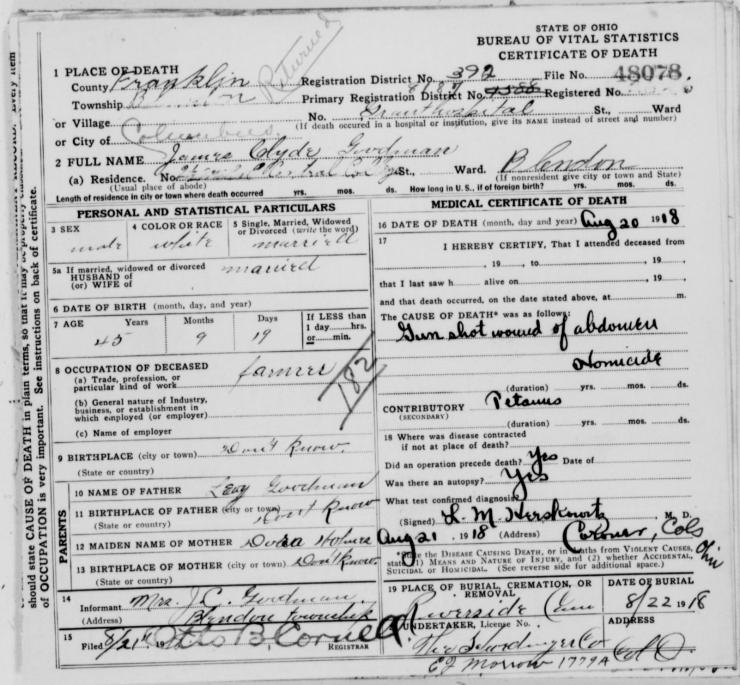 STATE OF OHIO
BUREAU OF VITAL STATISTICS
CERTIFICATE OF DEATH
1 PLACE OF DEATH
County Franklin Returned Registration District No. 392 File No. 48078
Township Primary Registration District No. Registered No.
or Village No. Grant Hospital St., Ward
(If death occured in a hospital or institution, give its NAME instead of street and number)
or City of Columbus
2 FULL NAME James Clyde Goodman
(a) Residence. No. St., Ward. Blendon
(Usual place of abode) (If nonresident give city or town and State)
Length of residence in city or town where death occurred yrs. mos. ds. How long in U. S., if of foreign birth? yrs. mos. ds.
PERSONAL AND STATISTICAL PARTICULARS
3 SEX male
4 COLOR OR RACE white
5 Single, Married, Widowed or Divorced (write the word) married
5a If married, widowed or divorced married
HUSBAND of
(or) WIFE of
6 DATE OF BIRTH (month, day, and year)
7 AGE Years Months Days If LESS than
45 9 19 1 day hrs.
or min.
8 OCCUPATION OF DECEASED farmer
(a) Trade, profession, or
particular kind of work
182
(b) General nature of Industry,
business, or establishment in
which employed (or employer)
(c) Name of employer
9 BIRTHPLACE (city or town) Don't Know
(State or country)
PARENTS
10 NAME OF FATHER Levy Goodman
11 BIRTHPLACE OF FATHER (city or town) Dont Know
(State or country)
12 MAIDEN NAME OF MOTHER Dora Holmes
13 BIRTHPLACE OF MOTHER (city or town) Don't Know
(State or country)
14
Informant Mrs. J.C. Goodman
(Address) Blendon Township
15 Filed 8/21st, 19 Otis B. Cornell
REGISTRAR
MEDICAL CERTIFICATE OF DEATH
16 DATE OF DEATH (month, day and year) Aug 20 1918
17
I HEREBY CERTIFY, That I attended deceased from
, 19 , to , 19
that I last saw h alive on , 19
and that death occurred, on the date stated above, at m.
The CAUSE OF DEATH* was as follows:
Gun shot wound of abdomen
Homicide
(duration) yrs. mos. ds.
CONTRIBUTORY Petanus
(SECONDARY)
(duration) yrs. mos. ds.
18 Where was disease contracted
if not at place of death?
Did an operation precede death? Yes Date of
Was there an autopsy? Yes
What test confirmed diagnosis?
(Signed) L. M. Herskowitz M. D.
Aug 21 1918 (Address) Coroner, Cols Ohio
*State the DISEASE CAUSING DEATH, or in deaths from VIOLENT CAUSES,
state (1) MEANS AND NATURE OF INJURY, and (2) whether ACCIDENTAL,
SUICIDAL or HOMICIDAL. (See reverse side for additional space.)
19 PLACE OF BURIAL, CREMATION, OR REMOVAL DATE OF BURIAL
Riverside Cem 8/22 1918
20 UNDERTAKER, License No. ADDRESS
Col O.
EJ Morrow 1779A
should state CAUSE OF DEATH in plain terms, so that it may be properly
of OCCUPATION is very important. See instructions on back of certificate.